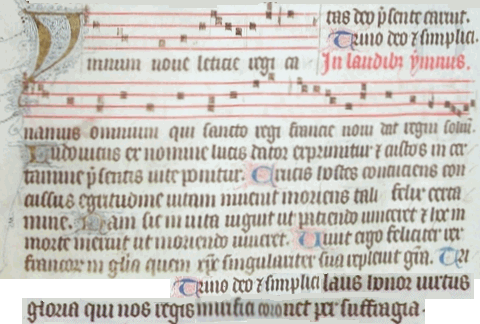 tas deo p̄sente caruit.
Trino deo ⁊ simplici.
Ymnum noue leticie regi ca
In laudibȝ ẏmnus.
namus omnium qui sancto regi francie nouū dat regnū
Ludouicus ex nomine lucis dator exprimitur ⁊ custos in cer
tamine p̄sentis uite ponitur. Crucis hostes conuiciens con
cussus egritudine uitam inuenit moriens tali felix certa
mine. Nam sic in uita uiguit ut paciendo uinceret ⁊ hec in
morte meruit ut moriendo uiueret. Viuit ergo feliciter rex
francorum in gl̄ia quem xp̄c singulariter sua repleuit gr̄a. Tri
Trino deo ⁊ simplici laus honor uirtus
gloria qui nos regis coronet per suffragia.